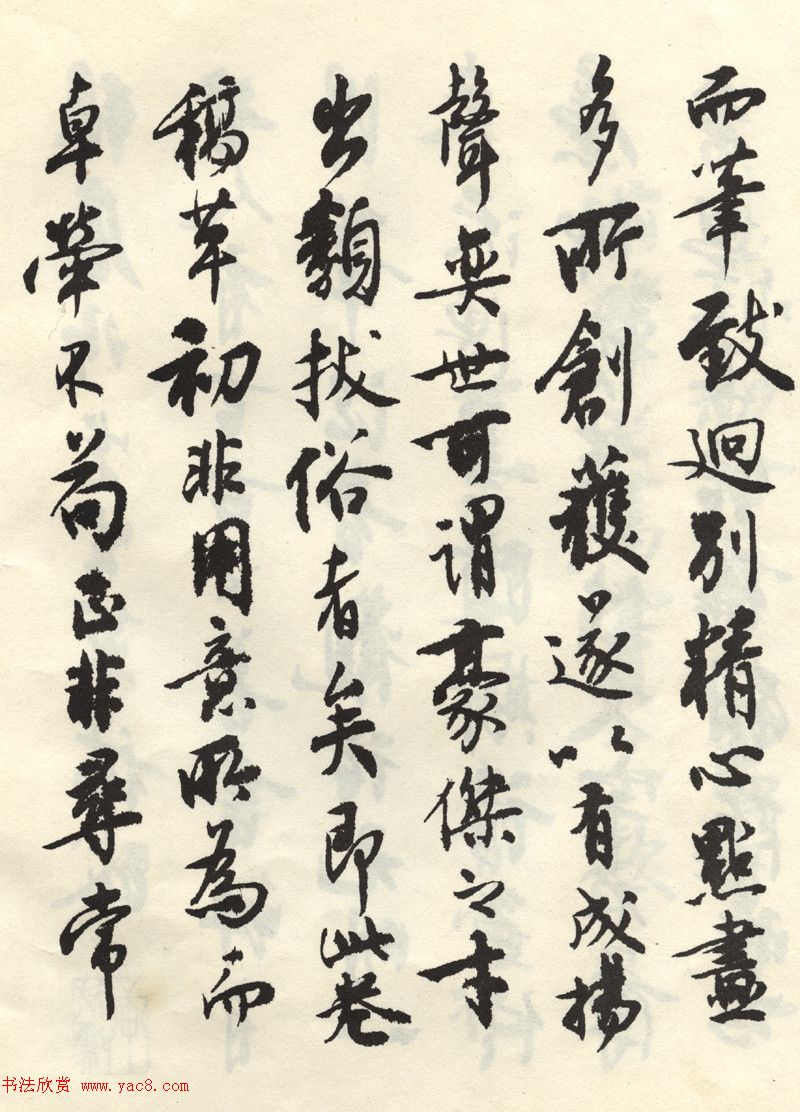 而筆致迥別精心點畫
多所創獲遂以有成揚
聲奕世可謂豪傑之才
出類拔俗者矣即此卷
稿草初非用意所為而
卓犖不苟正非尋常
书法欣赏 www.yac8.com